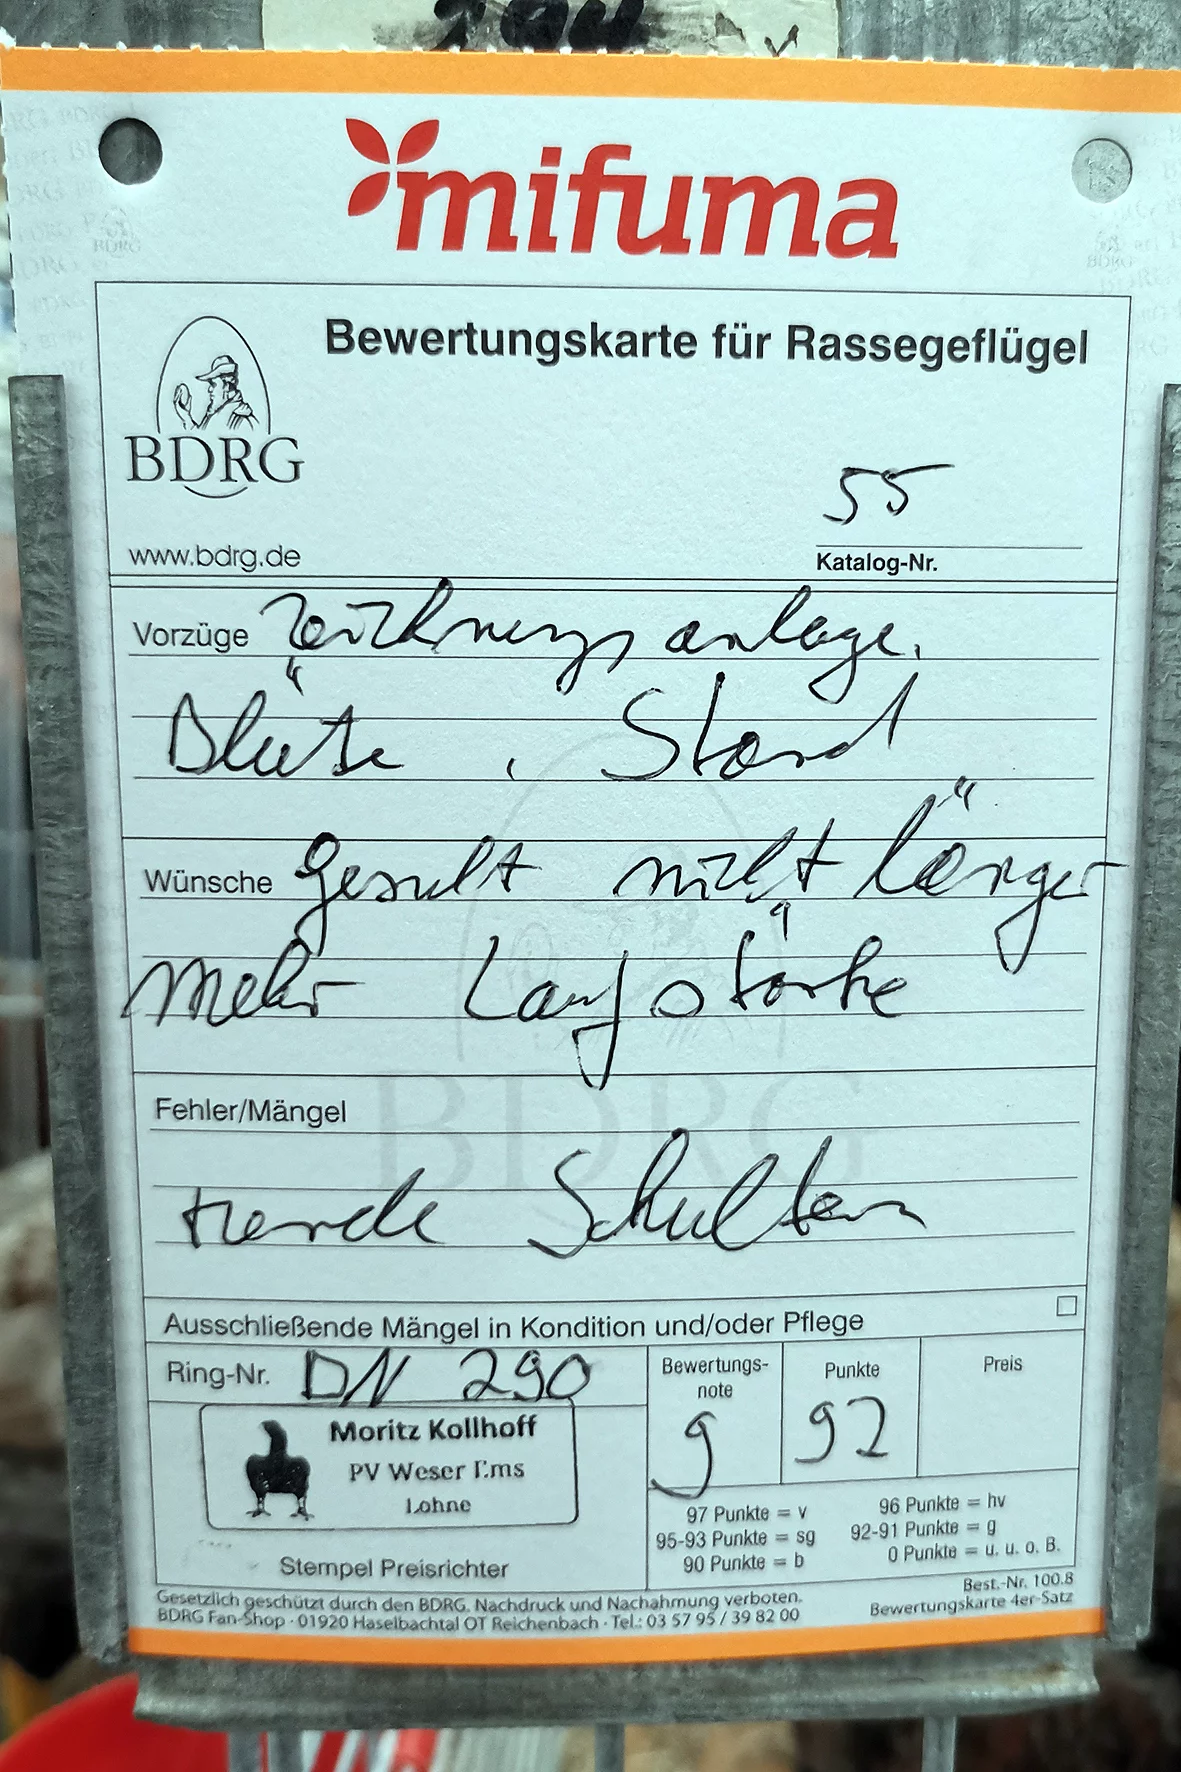 mifuma
Bewertungskarte für Rassegeflügel
BDRG
55
www.bdrg.de
Katalog-Nr.
Vorzüge Zeichnungsanlage,
Blüte, Stand
Wünsche Gesicht nicht länger
mehr Laufstärke
Fehler/Mängel
Schultern
Ausschließende Mängel in Kondition und/oder Pflege
Ring-Nr. DN 290
Bewertungs-
note
g
Punkte
92
Preis
Moritz Kollhoff
PV Weser Ems
Lohne
Stempel Preisrichter
97 Punkte = v
96 Punkte = hv
95-93 Punkte = sg
92-91 Punkte = g
90 Punkte = b
0 Punkte = u. u. o. B.
Gesetzlich geschützt durch den BDRG. Nachdruck und Nachahmung verboten.
BDRG Fan-Shop · 01920 Haselbachtal OT Reichenbach · Tel.: 03 57 95 / 39 82 00
Best.-Nr. 100.8
Bewertungskarte 4er-Satz